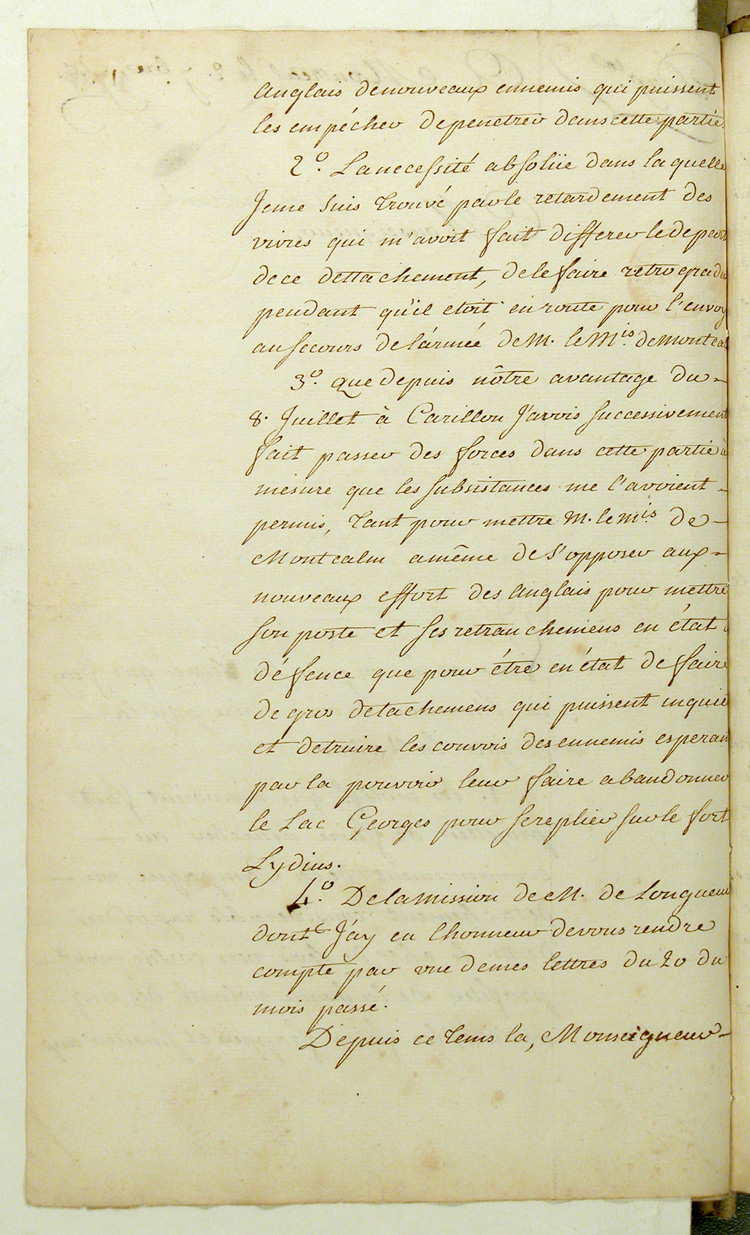 Anglais de nouveaux ennemis qui puissent
les empécher de penetrer dans cette partie
2.º La necessité absolüe dans laquelle
Je me suis trouvé par le retardement des
vivres qui m'avoit fait differer le depart
de ce dettachement, de le faire retrograd
pendant qu'il etoit en route pour l'envoy
au secours de l'armée de M. le M.is de Montcal
3.º que depuis nôtre avantage du
8. Juillet à Carillon J'avois successivement
fait passer des forces dans cette partie à
mesure que les subsistances me l'avoient
permis, tant pour mettre M. le M.is de
Montcalm a même de s'opposer aux
nouveaux effort des Anglais pour mettre
son poste et ses retranchemens en état d
défence que pour étre en état de faire
de gros detachemens qui puissent inquié
et detruire les convois des ennemis esperan
par la pouvoir leur faire abandonner
le Lac Georges pour se replier sur le fort
Lydius.
4.º De la mission de M. de Longueui
dont J'ay eu l'honneur de vous rendre
compte par une de mes lettres du 20 du
mois passé.
Depuis ce tems la, Monseigneur